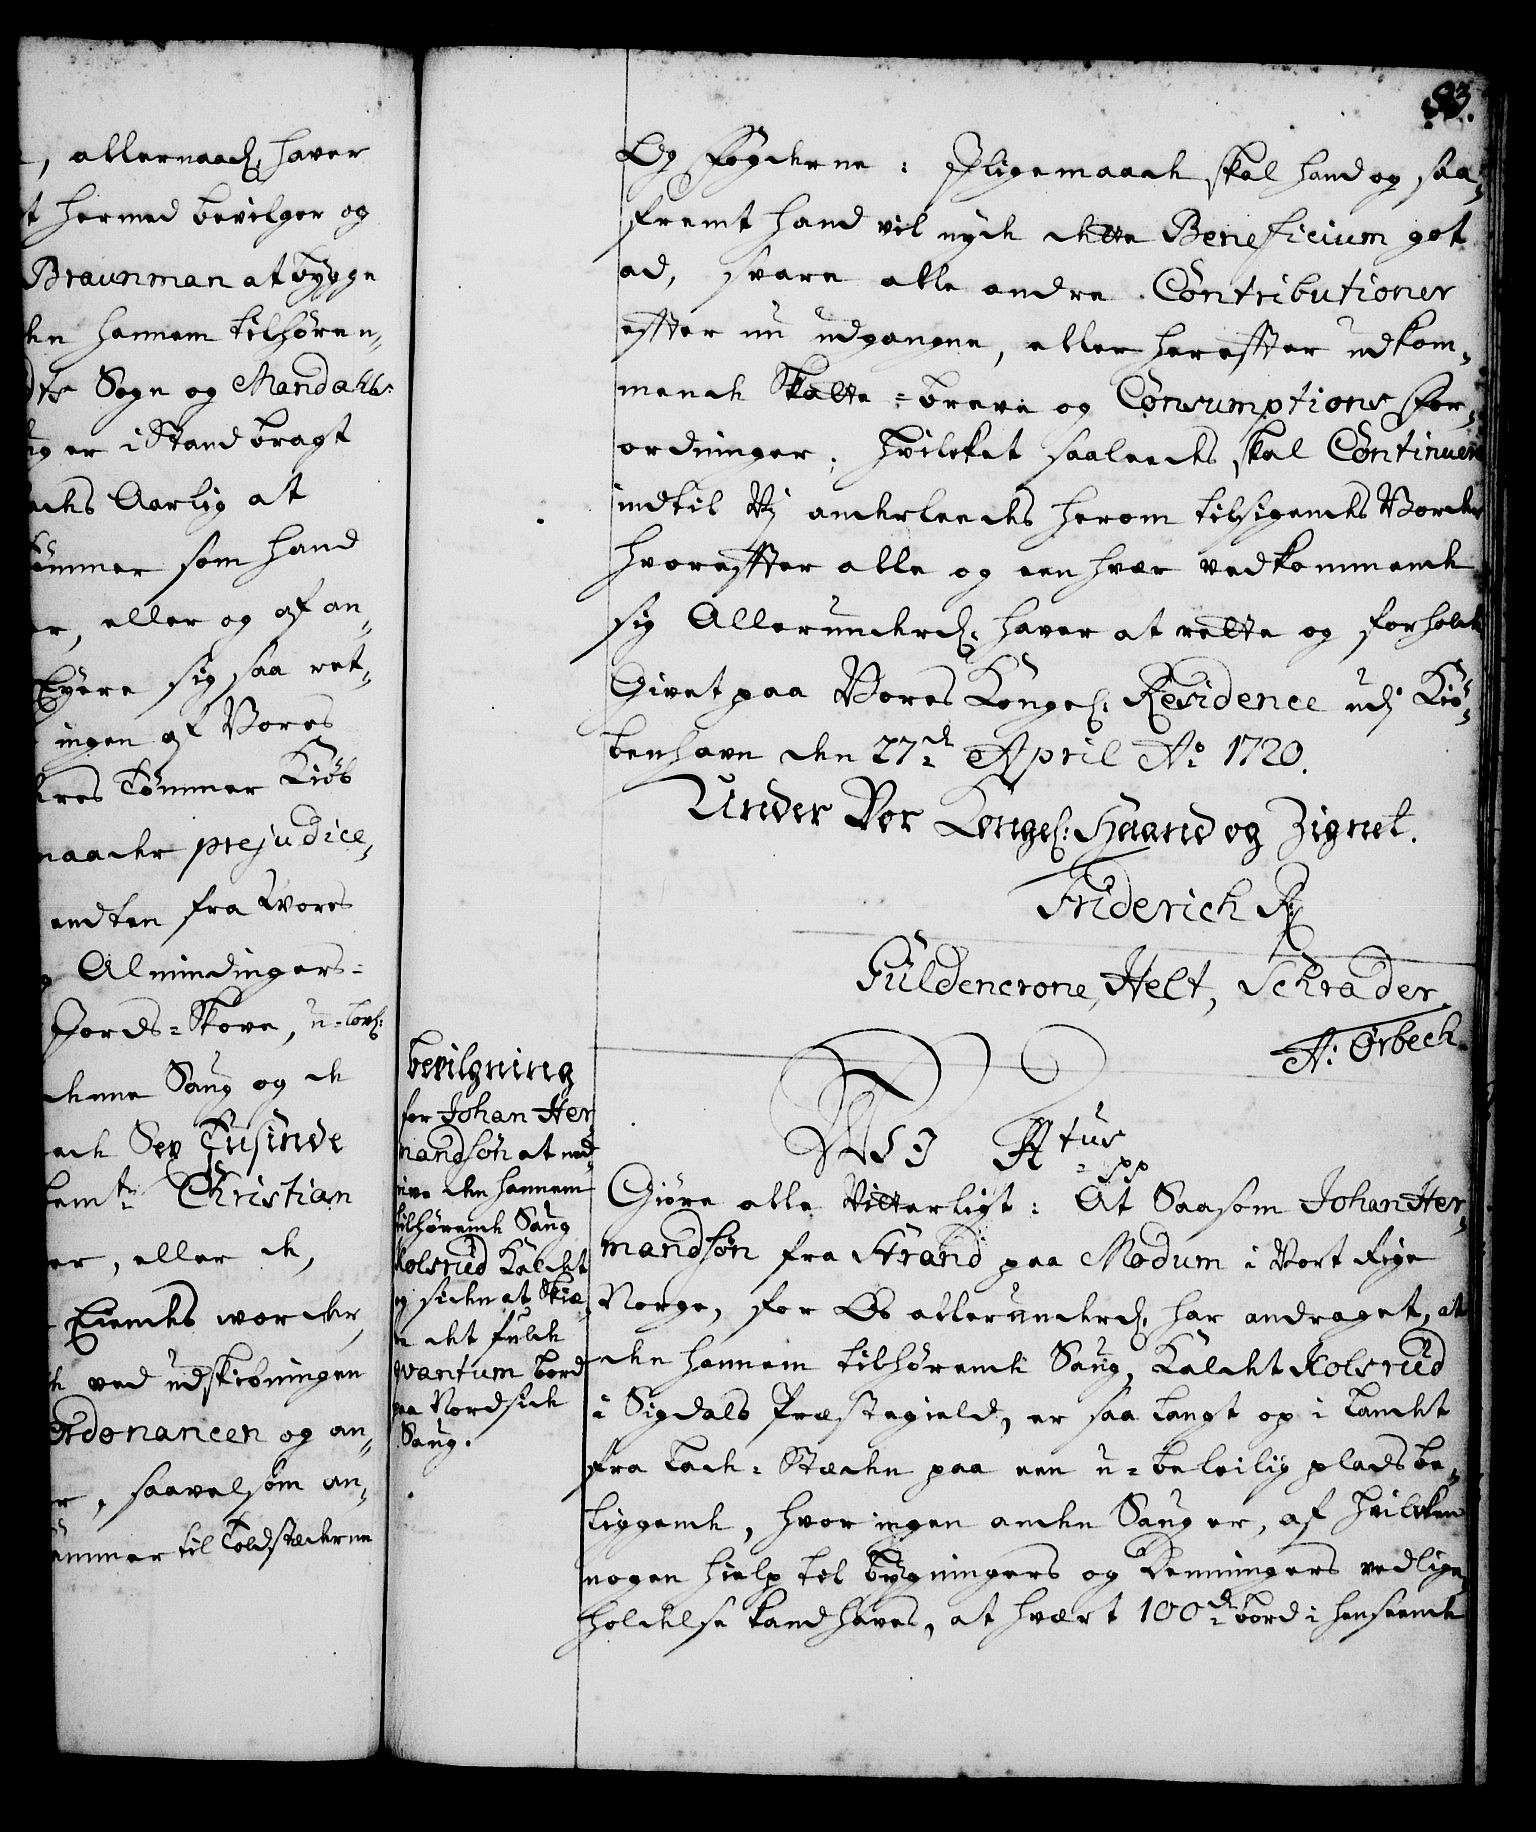 , allernaad: haver
t hermed bevilger og
Braunman at bygge
den hannem tilhøren-
Sogn og Mandahls-
er i Stand bragt
Aarlig at
som hand
er, eller og af an-
Eyere sig saa vel-
ingen af Vores
Tømmer Kiøb
maader prejudice-
endten fra Vores
Almindingers-
Jords-Skove, u-lovl:
denne Saug og de
Sex Tusinde
bemte Christian
er, eller de,
Eiendes worder,
ved udskibningen
Ordonancen og an-
r, saavelsom an-
til Toldstæderne
83.
Og Fogderne: Jligemaade skal hand og saa-
fremt hand vil nyde dette Beneficium got
ad, svare alle andre Contributioner
efter nu udgangne, eller herefter udkom-
mende Skatte-breve og Consumptions For-
ordninger; Hvilcket saaleedes skal Continuere
indtil Vj anderleedes herom tilsigendes Vorder
hvorefter alle og een hver vedkommende
sig Allerunderd: haver at rette og forholde
Givet paa Vores Kongel: Residence udj Kiø-
benhavn den 27de April Ao 1720.
Under Vor Kongel: Haand og Zignet.
Friderich R
Güldencrone, Helt, Schrader.
A: Ørbech.
bevilgning
for Johan Her
mandsøn at ned-
rive den hannem
tilhørende Saug
Kolsrud Kaldet
og siden at Skiæ-
re det fulde
qvantum bord
paa Nordside
Saug.
W 5 J Atus
pp
Giøre alle Vitterligt: At Saasom Johan Her-
mandsøn fra Strand paa Modum i Vort Rige
Norge, for Os allerunderd: har andraget, at
den hannem tilhørende Saug, Kaldet Kolsrud
i Sigdals Præstegield, er saa langt op i landet
fra Lade-Stæden paa een u-beleilig plads be-
liggende, hvor ingen anden Saug er, af hvilcken
nogen hielp til bygningers og Demningers vedlige-
holdelse kand haves, at hvært 100de bord i henseende